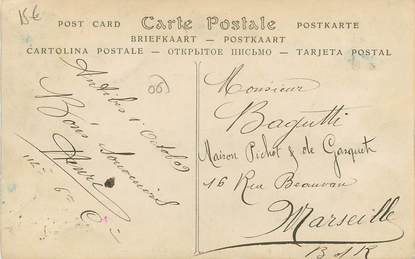 15€
POST CARD Carte Postale POSTKARTE
BRIEFKAART — POSTKAART
CARTOLINA POSTALE — ОТКРЫТОЕ ПИСЬМО — TARJETA POSTAL
06
Antibes 1 Octob 09
Bons Souvenirs
Henri
Monsieur
Bagutti
Maison Pichot & de Gasquet
16 Rue Beauvau
Marseille
B d R